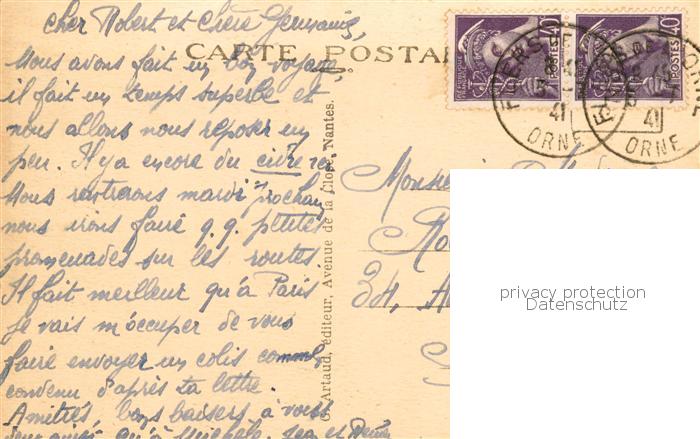 cher Robert et Chère Germaine,
CARTE POSTA
Nous avons fait un bon voyage,
il fait un temps superbe et
nous allons nous reposer un
peu. Il y a encore du civre ici
Nous rentrerons mardi prochain
nous irons faire q.q. petites
promenades sur les routes
Il fait meilleur qu'à Paris
Je vais m'occuper de vous
faire envoyer un colis comme
convenu d'après ta lettre.
Amitiés, bons baisers à vous
deux ainsi qu'à Michèle.
Artaud, éditeur, Avenue de la Close, Nantes.
POSTES 40
POSTES 40
FLERS
41
ORNE
41
ORNE
Monsieur
34,
privacy protection
Datenschutz